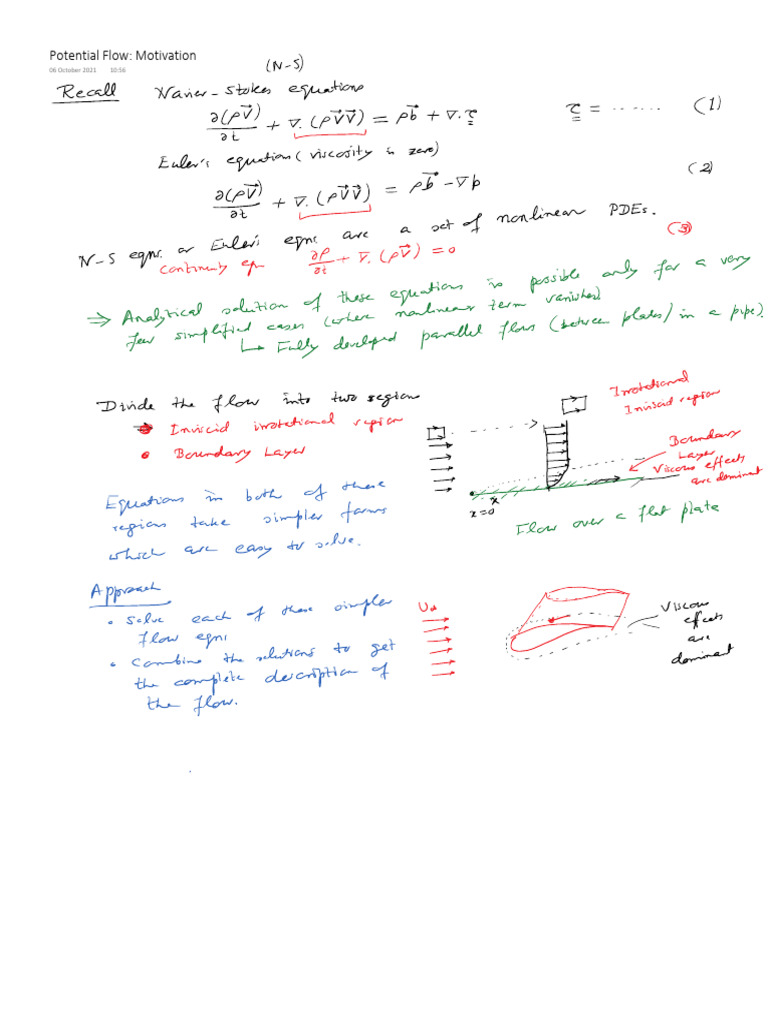 Potential Flow: Motivation
06 October 2021 10:56
(N-S)
Recall Navier-Stokes equations
∂(ρV⃗)/∂t + ∇.(ρV⃗V⃗) = ρb⃗ + ∇.τ τ = ...... (1)
Euler's equation (viscosity is zero)
∂(ρV⃗)/∂t + ∇.(ρV⃗V⃗) = ρb⃗ - ∇p (2)
N-S eqns. or Euler's eqns. are a set of nonlinear PDEs.
continuity eqn ∂ρ/∂t + ∇.(ρV⃗) = 0 (3)
⇒ Analytical solution of these equations is possible only for a very
few simplified cases (where nonlinear term vanishes)
↳ Fully developed parallel flows (between plates/in a pipe).
Divide the flow into two region
• Inviscid irrotational region
• Boundary Layer
Irrotational
Inviscid region
Boundary
Layer
Viscous effects
are dominant
x
x=0
Flow over a flat plate
Equations in both of these
regions take simpler forms
which are easy to solve.
Approach
• Solve each of these simpler
flow eqns
• Combine the solutions to get
the complete description of
the flow.
U∞
Viscous
effects
are
dominant